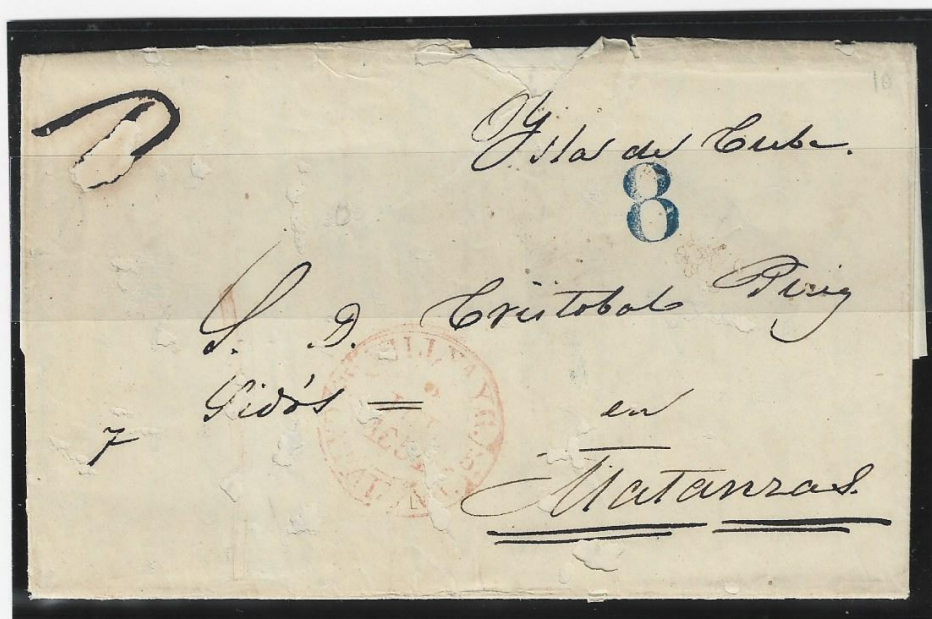 10
Ysla de Cuba.
8
S. D. Cristobal Puig
Gidós = en
7
Matanzas.